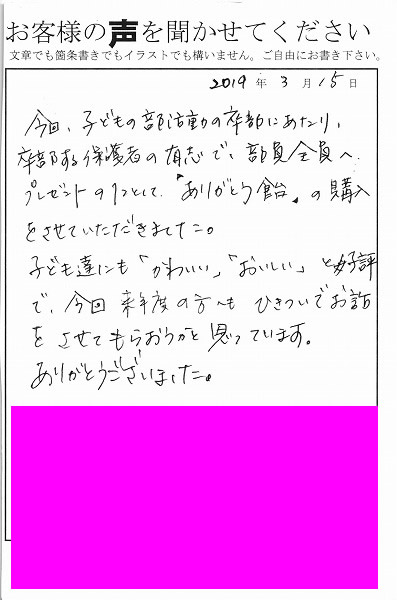 お客様の声を聞かせてください
文章でも箇条書きでもイラストでも構いません。ご自由にお書き下さい。
2019年 3月 15日
今回、子どもの部活動の卒部にあたり、
卒部する保護者の有志で、部員全員へ
プレゼントの1つとして、「ありがとう飴」の購入
をさせていただきました。
子ども達にも「かわいい」「おいしい」と好評
で、今回来年度の方へも ひきついでお話
を させてもらおうかと思っています。
ありがとうございました。